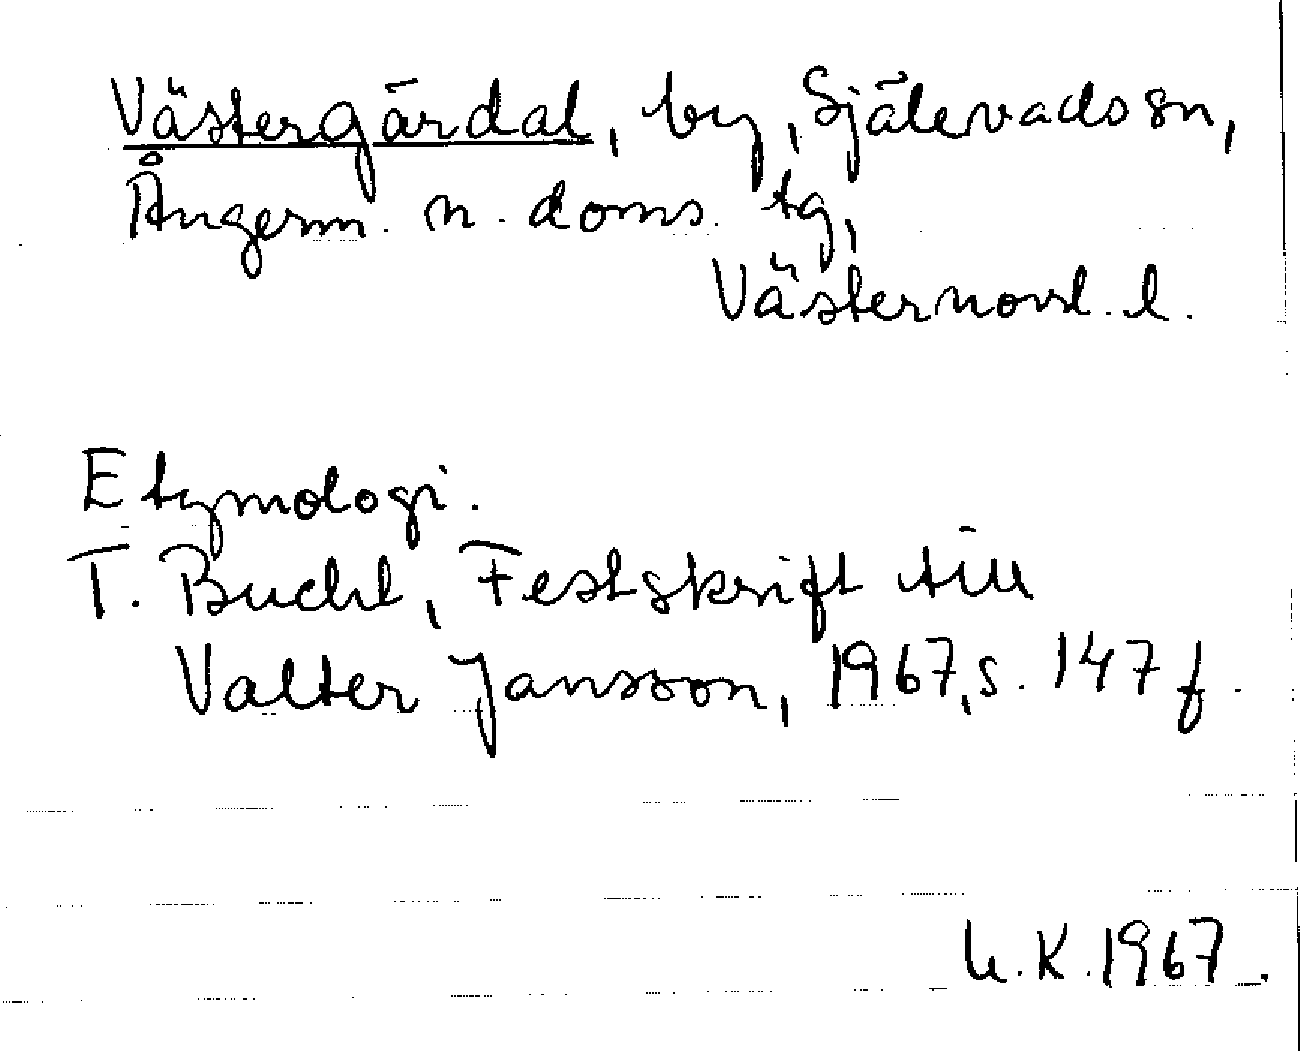 Västergärdal, by, Själevads sn,
Ångerm. n. doms. tg,
Västernorrl. l.
Etymologi.
T. Bucht, Festskrift till
Valter Jansson, 1967, s. 147 f.
U.K. 1967.